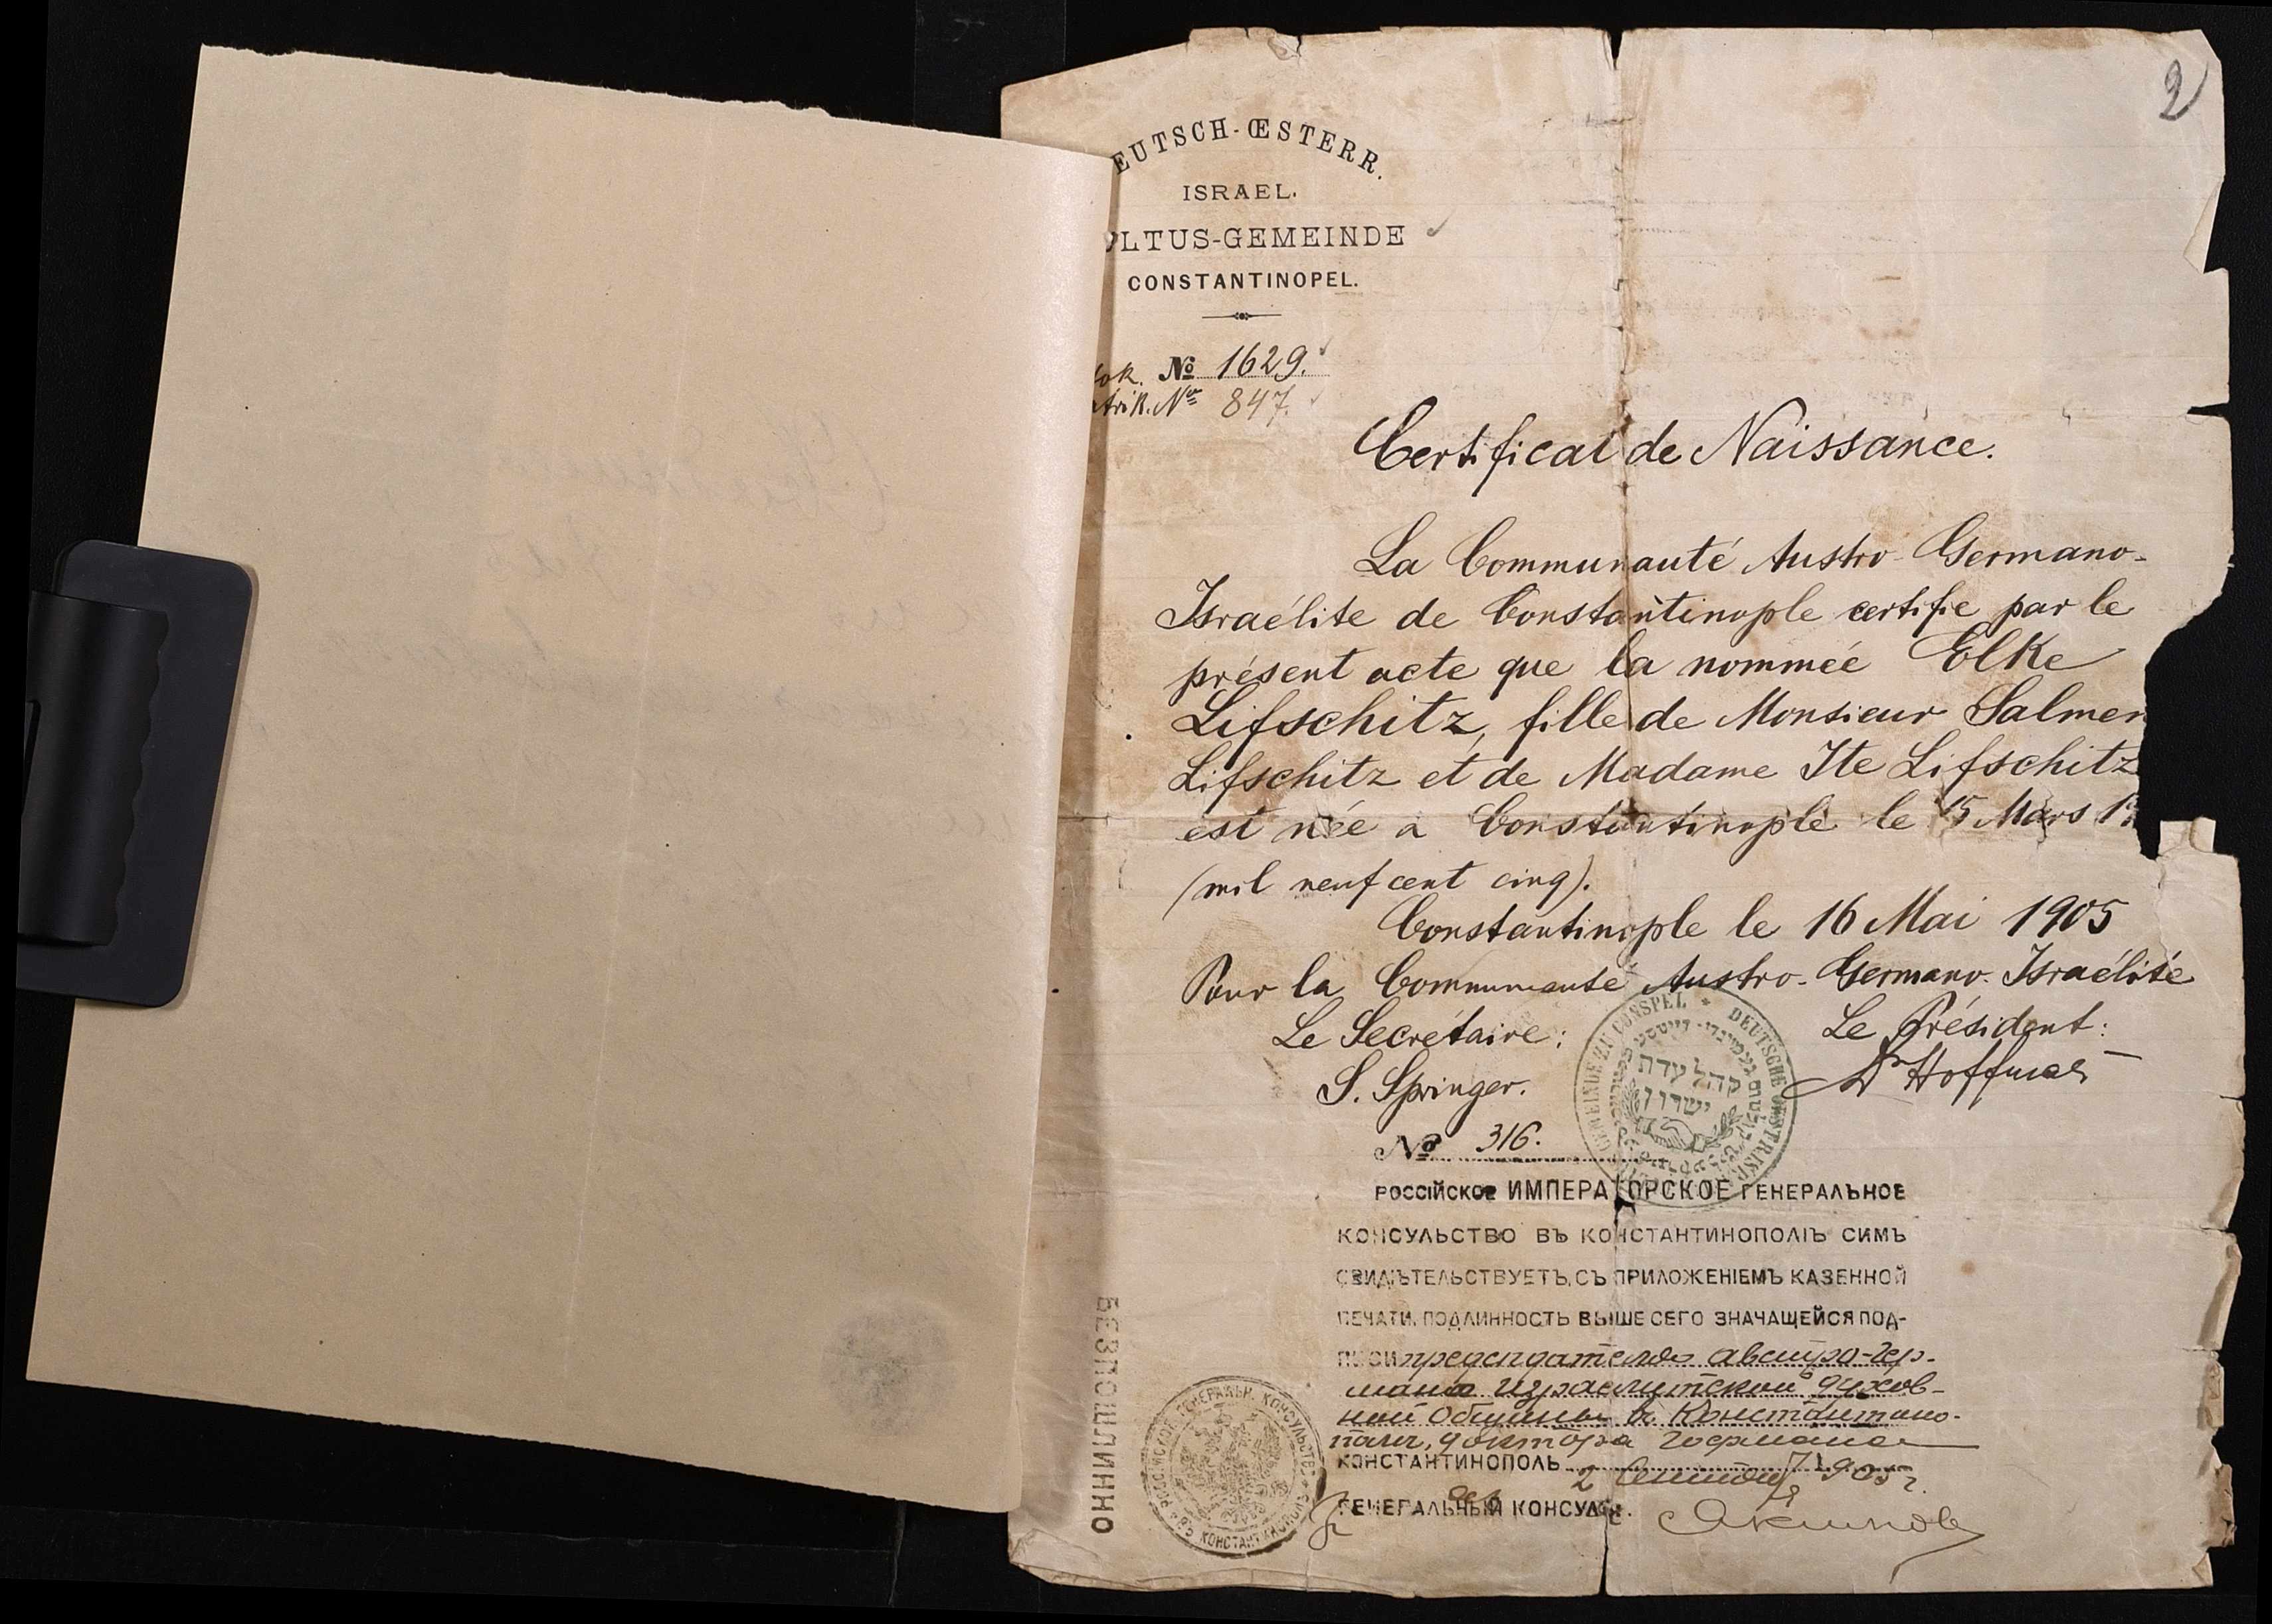 2
EUTSCH-ŒSTERR.
ISRAEL.
LTUS-GEMEINDE
CONSTANTINOPEL.
ok. № 1629.
trik. Nr 847.
Certificat de Naissance.
La Communauté Austro-Germano-
Israélite de Constantinople certifie par le
présent acte que la nommée Elke
Lifschitz, fille de Monsieur Salmen
Lifschitz et de Madame Ite Lifschitz
est née a Constantinople le 15 Mars 1
(mil neuf cent cinq).
Constantinople le 16 Mai 1905
Pour la Communauté Austro-Germano-Israélite
Le Secrétaire: Le Président:
S. Springer. Dr Hoffman
№ 316.
GEMEINDE ZU CONSPEL * DEUTSCHE OESTR ISR
קהל עדת
ישרון
РОССІЙСКОЕ ИМПЕРАТОРСКОЕ ГЕНЕРАЛЬНОЕ
КОНСУЛЬСТВО ВЪ КОНСТАНТИНОПОЛѢ СИМЪ
СВИДѢТЕЛЬСТВУЕТЪ, СЪ ПРИЛОЖЕНІЕМЪ КАЗЕННОЙ
ПЕЧАТИ, ПОДЛИННОСТЬ ВЫШЕ СЕГО ЗНАЧАЩЕЙСЯ ПОД-
ПИСИ председателя австро-гер-
мано израелитской духов-
ной общины в Константино-
поле, доктора Гофмана
КОНСТАНТИНОПОЛЬ 2 1905 г.
ГЕНЕРАЛЬНЫЙ КОНСУЛЪ.
Якимов
БЕЗПОШЛИННО
РОССІЙСКОЕ ГЕНЕРАЛЬН. КОНСУЛЬСТВО ВЪ КОНСТАНТИНОПОЛѢ